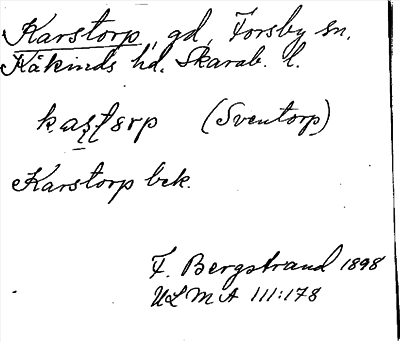 Karstorp, gd, Forsby sn,
Kåkinds hd. Skarab. l.
kaʂʈɛrp (Sventorp)
Karstorp bek.
F. Bergstrand 1898
ULMA 111:178